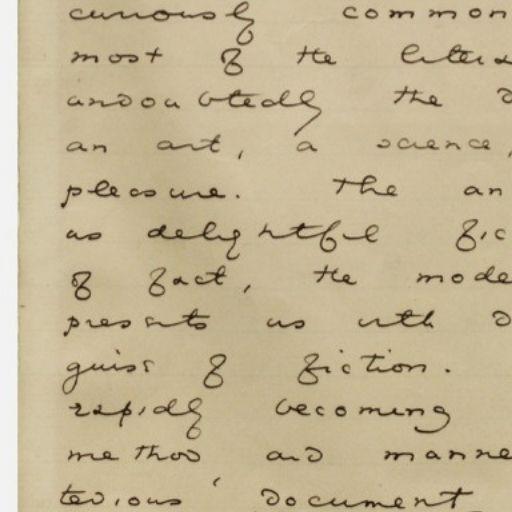 curiously common
most of the litera
undoubtedly the d
an art, a science,
pleasure. The an
us delightful fic
of fact, the mode
presents us with d
guise of fiction.
rapidly becoming
method and manne
tedious document